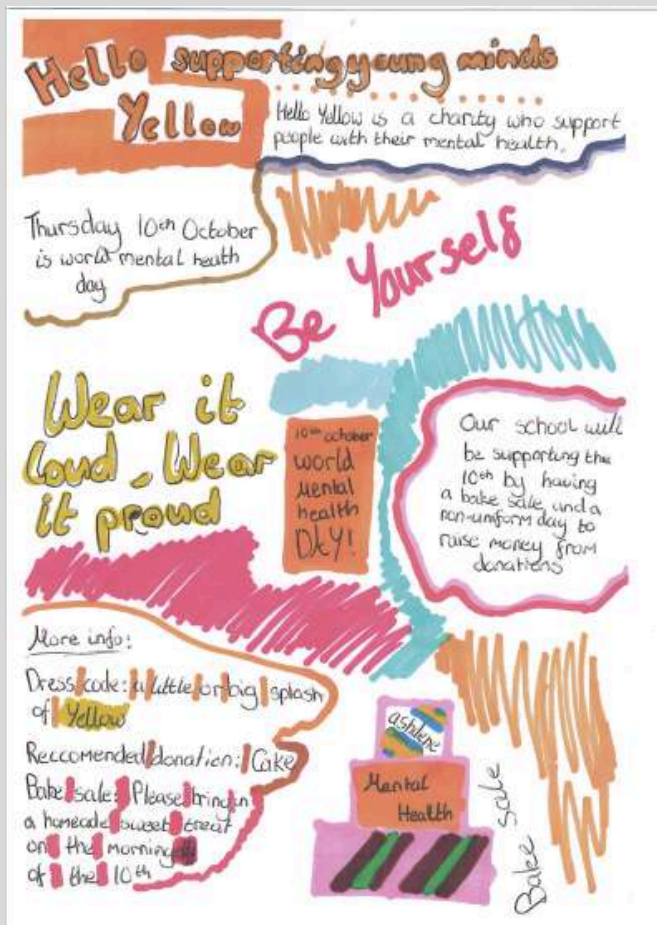 Hello supporting young minds
Yellow
Hello Yellow is a charity who support
people with their mental health.
Thursday 10th October
is world mental heath
day
Be Yourself
Wear it
loud, Wear
it proud
10th october
world
Mental
health
DAY!
Our school will
be supporting the
10th by having
a bake sale and a
non-uniform day to
raise money from
donations
More info:
Dress code: a little or big splash
of Yellow
Reccomended donation: Cake
Bake sale: Please bring in
a homeade sweet treat
on the morning
of the 10th
ashdene
Mental
Health
Bake sale